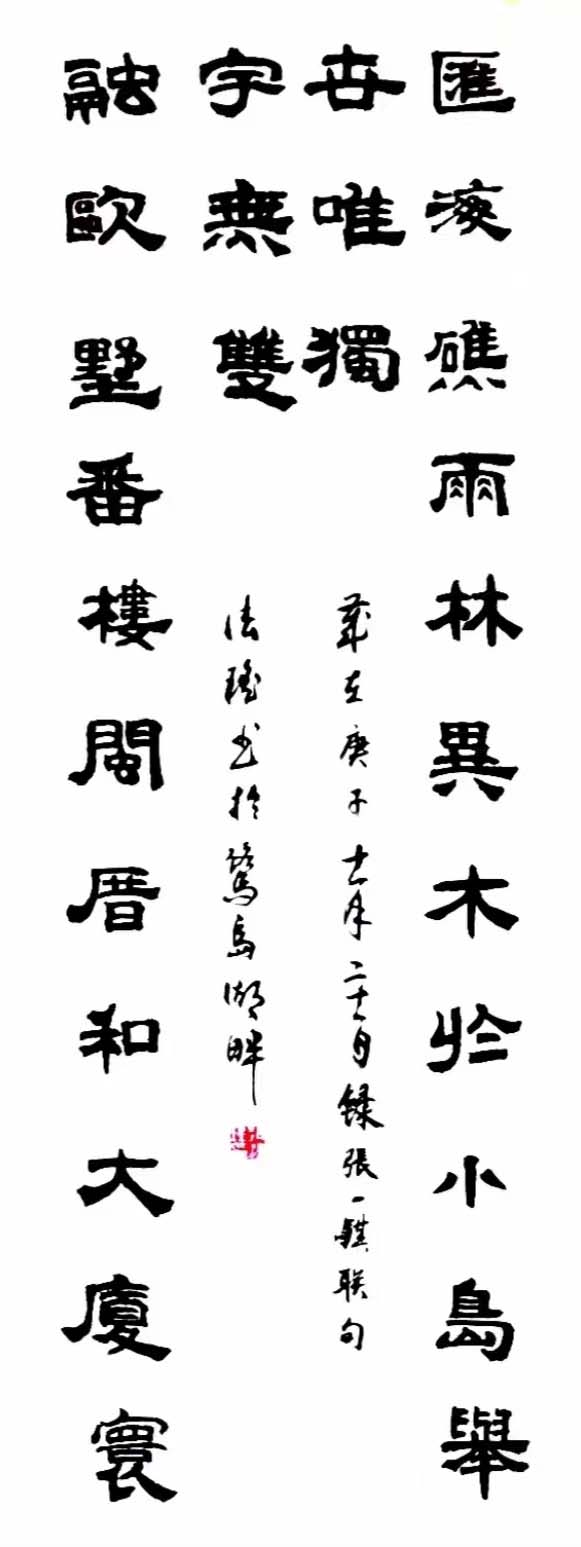 匯海礁雨林異木於小島舉
世唯獨
融歐墅番樓閩厝和大廈寰
宇無雙
歲在庚子十一月二十日錄張一聯句
法書於鷺島湖畔